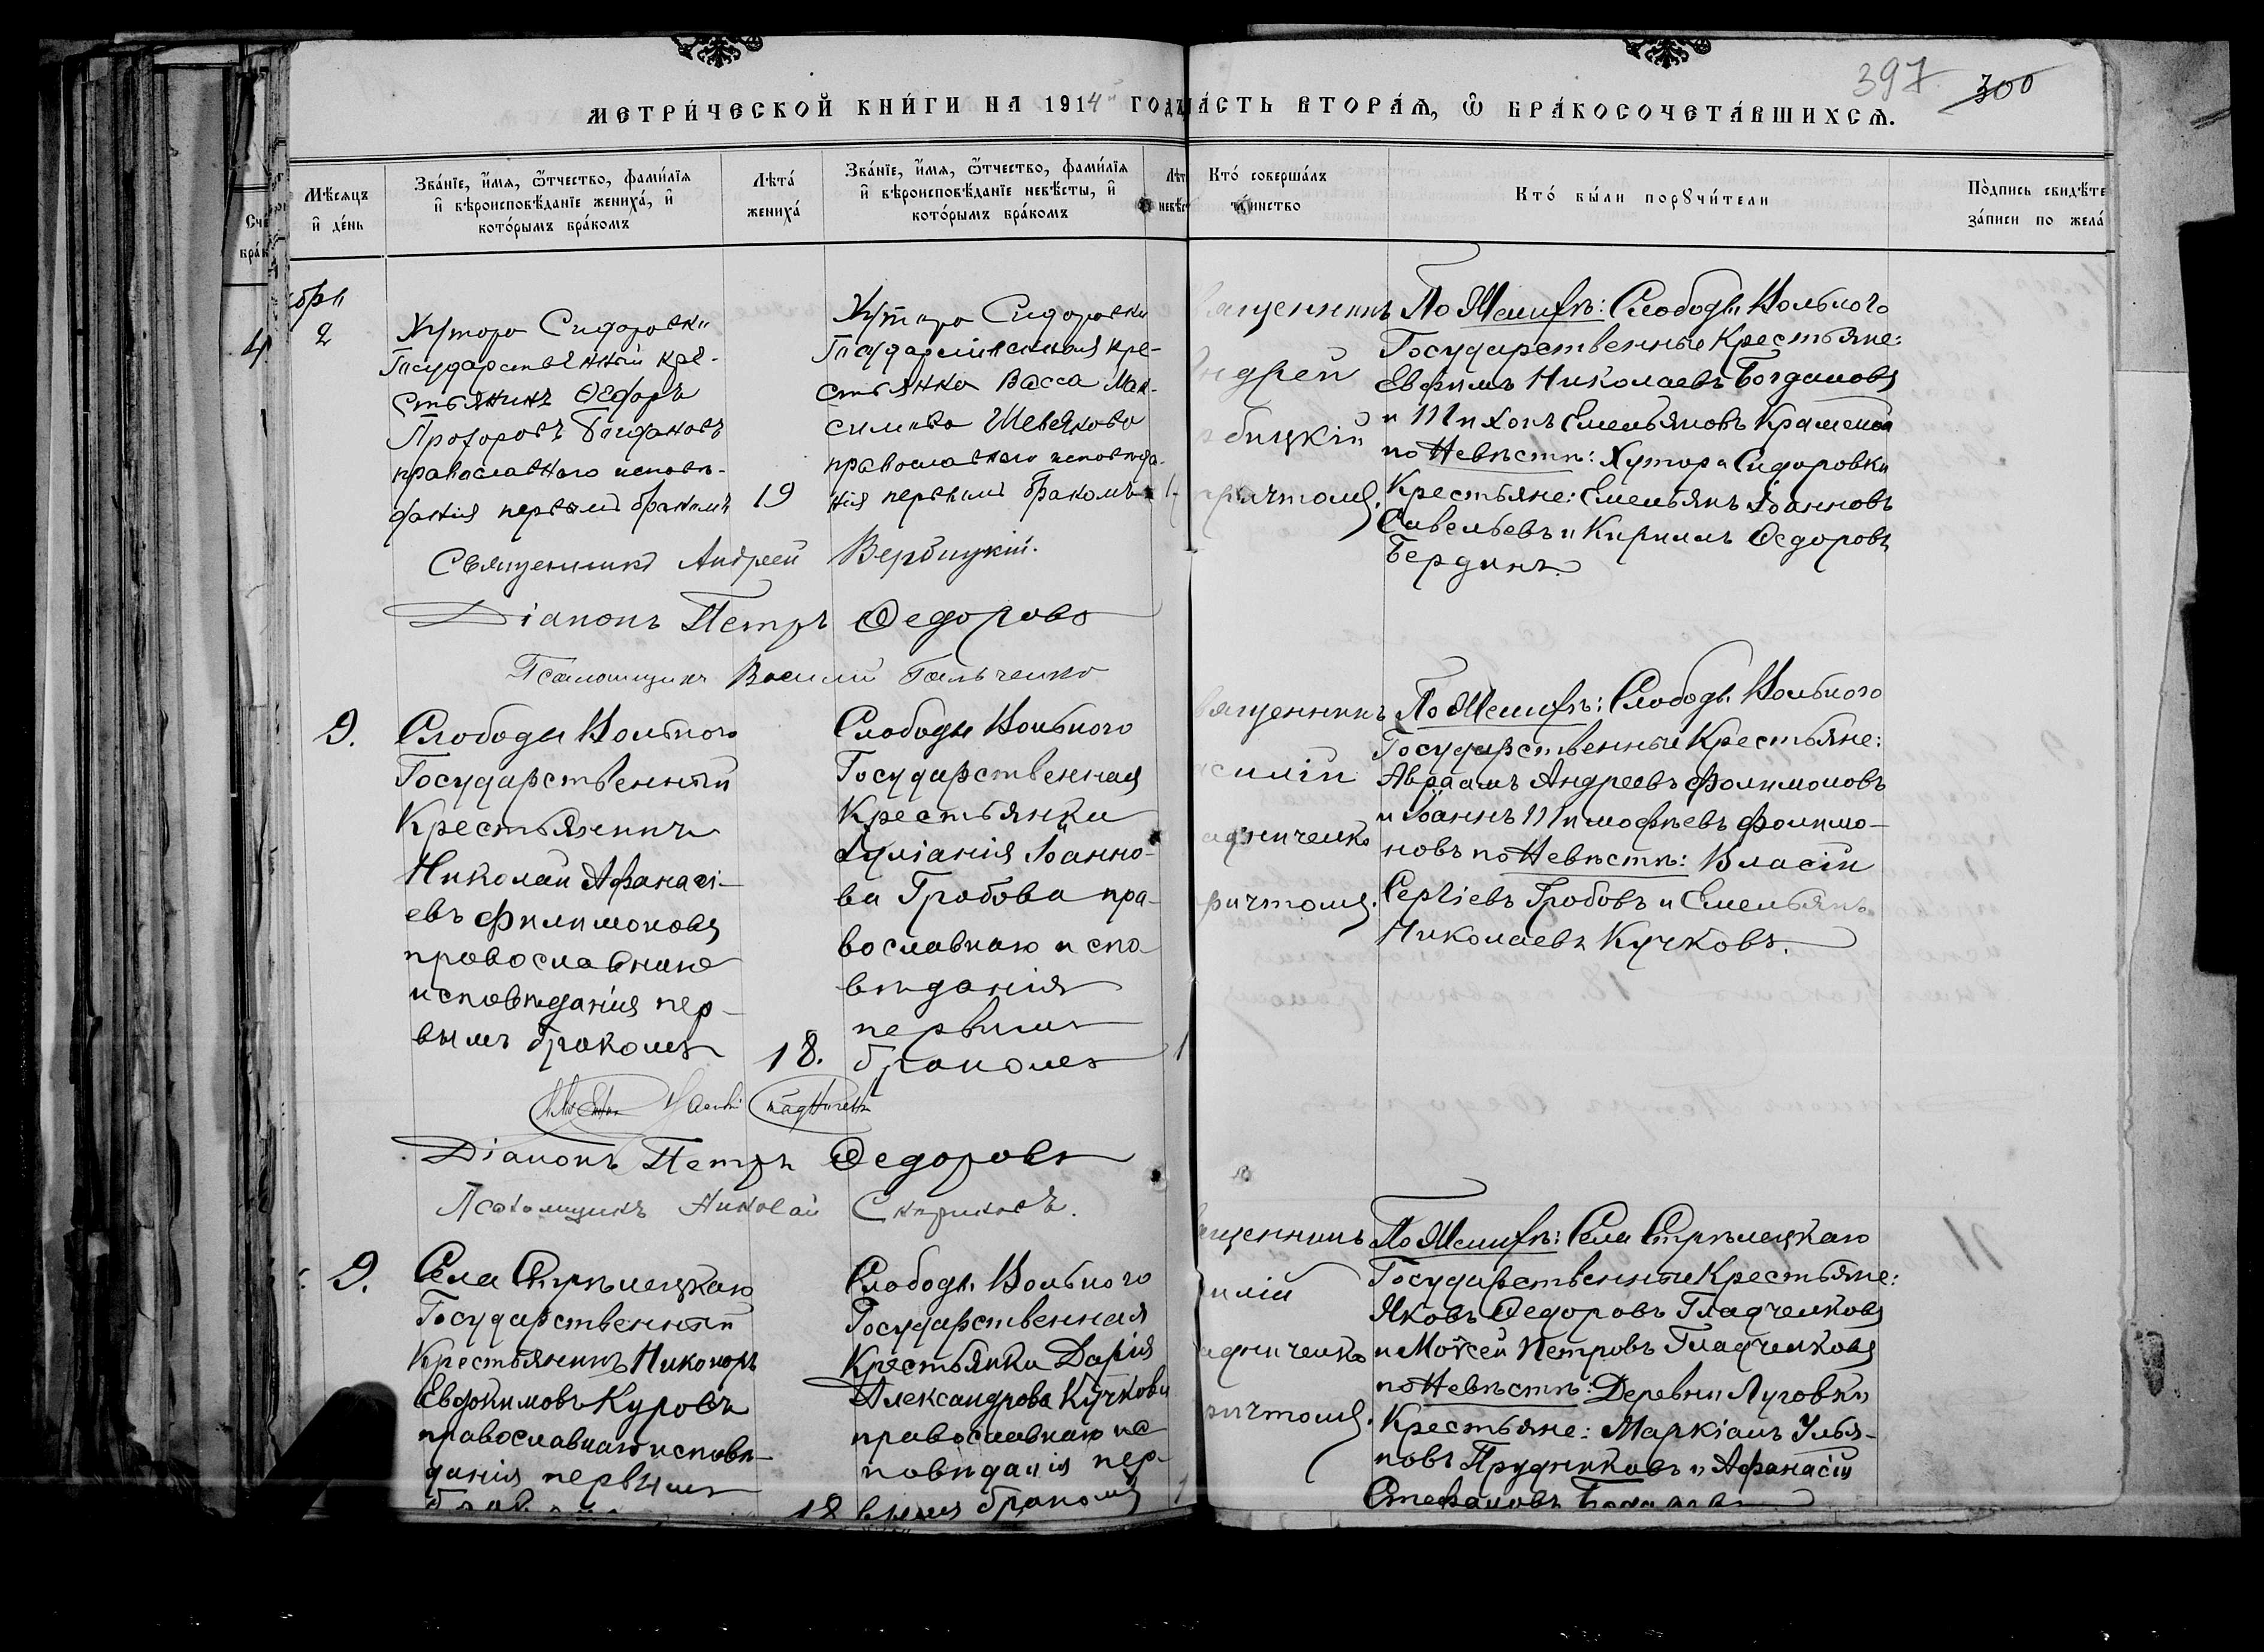 397
300
МЕТРИЧЕСКОЙ КНИГИ НА 1914 ГОДЪ
ЧАСТЬ ВТОРАЯ, Ѡ БРАКОСОЧЕТАВШИХСЯ.
Мѣсяцъ
и день
Званіе, имя, ѿчество, фамилія
и вѣроисповѣданіе жениха, и
которымъ бракомъ
Лѣта
жениха
Званіе, имя, ѿчество, фамилія
и вѣроисповѣданіе невѣсты, и
которымъ бракомъ
Кто совершалъ
таинство
Кто были порꙋчители
Подпись свидѣте
записи по жела
4
2
Хутора Сидоровки
Государственный кре-
стьянинъ Ѳедоръ
Прохоровъ Богдановъ
православнаго исповѣ-
данія первымъ бракомъ
19
Хутора Сидоровки
Государственная кре-
стьянка Васса Мак-
симова Шевякова
православнаго исповѣда-
нія первымъ бракомъ
Священникъ Андрей Вербицкій.
Діаконъ Петръ Ѳедоровъ
Псаломщикъ Василій Гальченко
вященникъ
ндрей
рбицкій
ричтомъ.
По Женихѣ: Слободы Вольнаго
Государственные Крестьяне:
Евфимъ Николаевъ Богдановъ
и Тихонъ Емельяновъ
по Невѣстѣ: Хутора Сидоровки
Крестьяне: Емельянъ Іоанновъ
Савельевъ и Кириллъ Ѳедоровъ
Бердинъ.
9.
Слободы Вольнаго
Государственный
Крестьянинъ
Николай Афанасі-
евъ Филимоновъ
православнаго
исповѣданія пер-
вымъ бракомъ
18.
Слободы Вольнаго
Государственная
Крестьянка
Іуліанія Іоанно-
ва Гробова пра-
вославнаго испо
вѣданія
первымъ
бракомъ
Діаконъ Петръ Ѳедоровъ
Псаломщикъ Николай Скориковъ.
вященникъ
асилій
адниченко
ричтомъ.
По Женихѣ: Слободы Вольнаго
Государственные Крестьяне:
Авраамъ Андреевъ Филимоновъ
и Іоаннъ Тимофѣевъ Филимо-
новъ по Невѣстѣ: Власій
Сергіевъ Гробовъ и Емельянъ
Николаевъ Кучковъ.
9.
Села Стрѣлецкаго
Государственный
Крестьянинъ Никоноръ
Евдокимовъ Куровъ
православнаго исповѣ-
данія первымъ
18
Слободы Вольнаго
Государственная
Крестьянка Дарія
Александрова Кучкова
православнаго ис
повѣданія пер-
вымъ бракомъ
ященникъ
илій
адниченко
ричтомъ.
По Женихѣ: Села Стрѣлецкаго
Государственные Крестьяне:
Яковъ Ѳедоровъ Гладченковъ
и Моѵсей Петровъ Гладченковъ
по Невѣстѣ: Деревни Луговки
Крестьяне: Маркіанъ Улья-
новъ Прудниковъ и Афанасій
Стефановъ